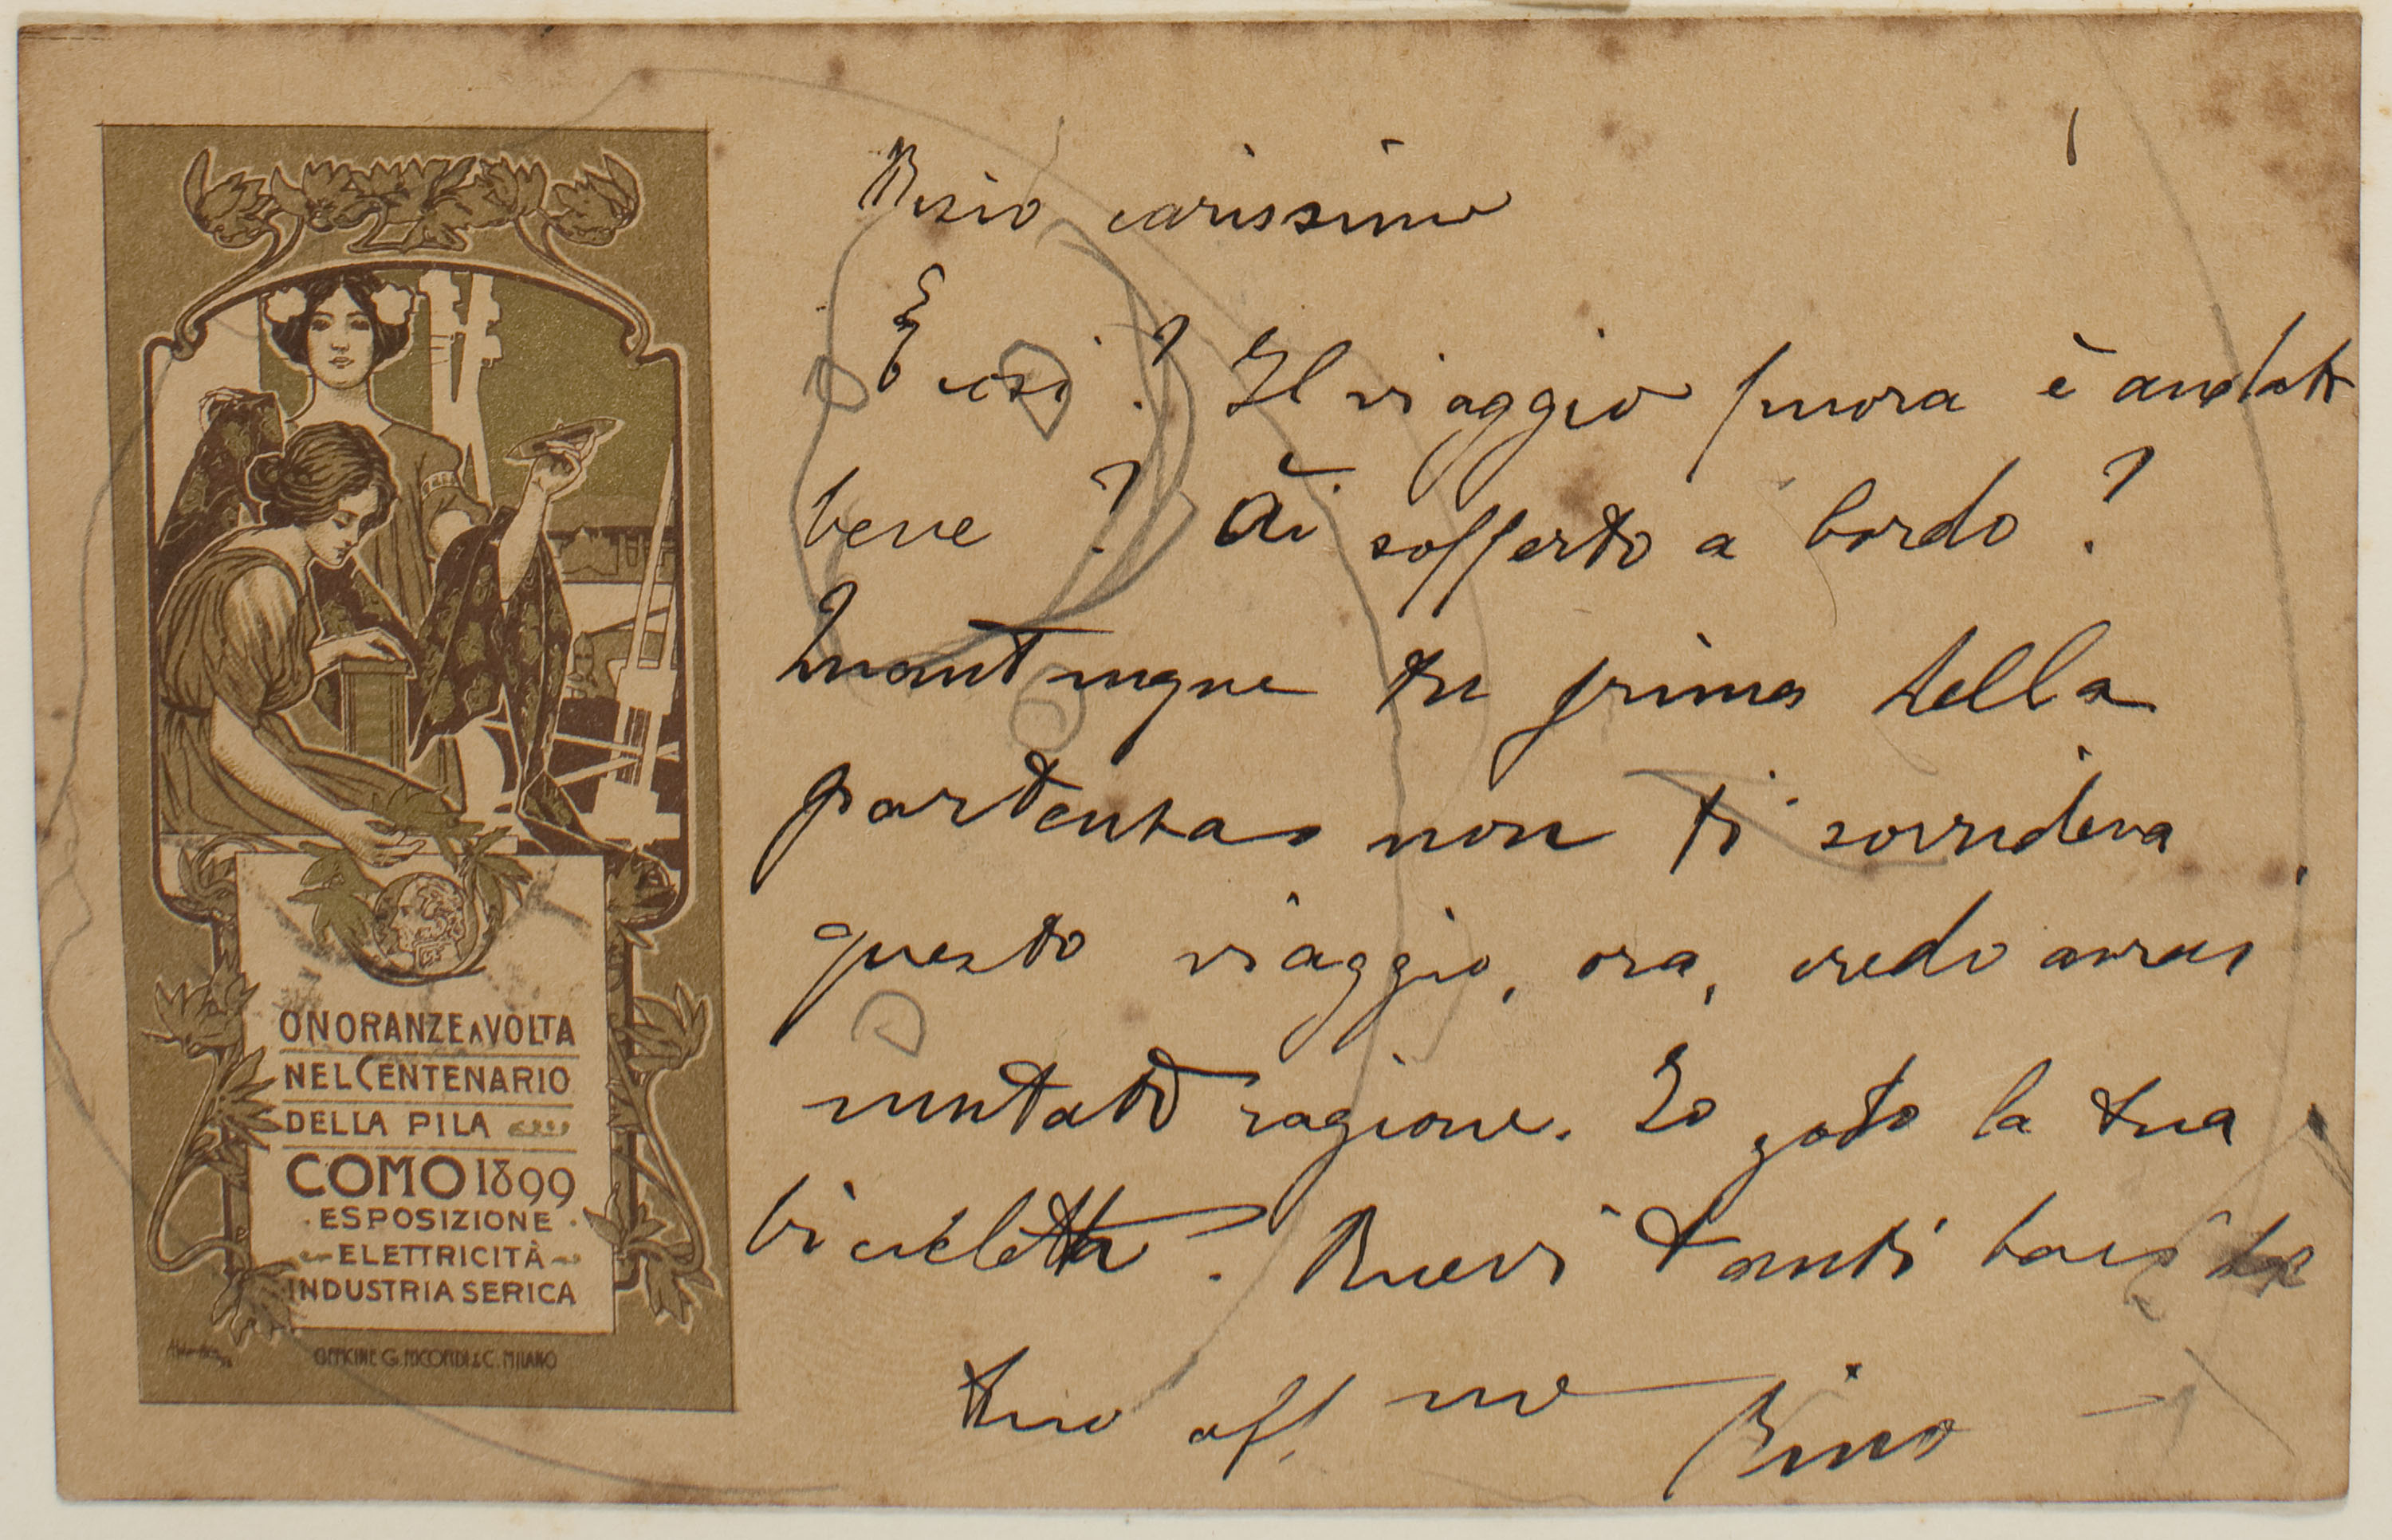 ONORANZE A VOLTA
NEL CENTENARIO
DELLA PILA
COMO 1899
ESPOSIZIONE
ELETTRICITÀ
INDUSTRIA SERICA
OFFICINE G. RICORDI & C. MILANO
carissimo
E così? Il viaggio finora è andato
bene? Ài sofferto a bordo?
Quantunque tu prima della
partenza non ti sorrideva
questo viaggio, ora, credo avrai
mutato ragione. Io godo la tua
bicicletta. Ricevi tanti baci dal
tuo aff.mo Gino